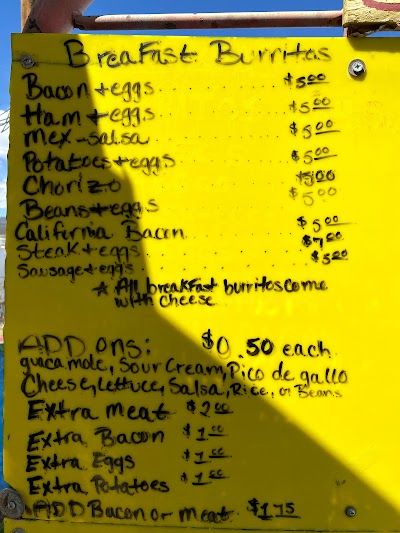 BreaKFast Burritos
Bacon + eggs . . . . . . . . $5.00
Ham + eggs . . . . . . . . $5.00
Mex - salsa . . . . . . . . $5.00
Potatoes + eggs . . . . . . . . $5.00
Chorizo . . . . . . . . $5.00
Beans + eggs . . . . . . . . $5.00
California Bacon . . . . . . . . $5.00
Steak + eggs . . . . . . . . $7.00
Sausage + eggs . . . . . . . .
☆ All breakFast burritos come
with cheese
ADD ONS: $0.50 each
guacamole, Sour Cream, Pico de gallo
Cheese, Lettuce, Salsa, Rice, or Beans
Extra meat $2.00
Extra Bacon $1.00
Extra Eggs $1.00
Extra Potatoes $1.00
ADD Bacon or meat $1.75